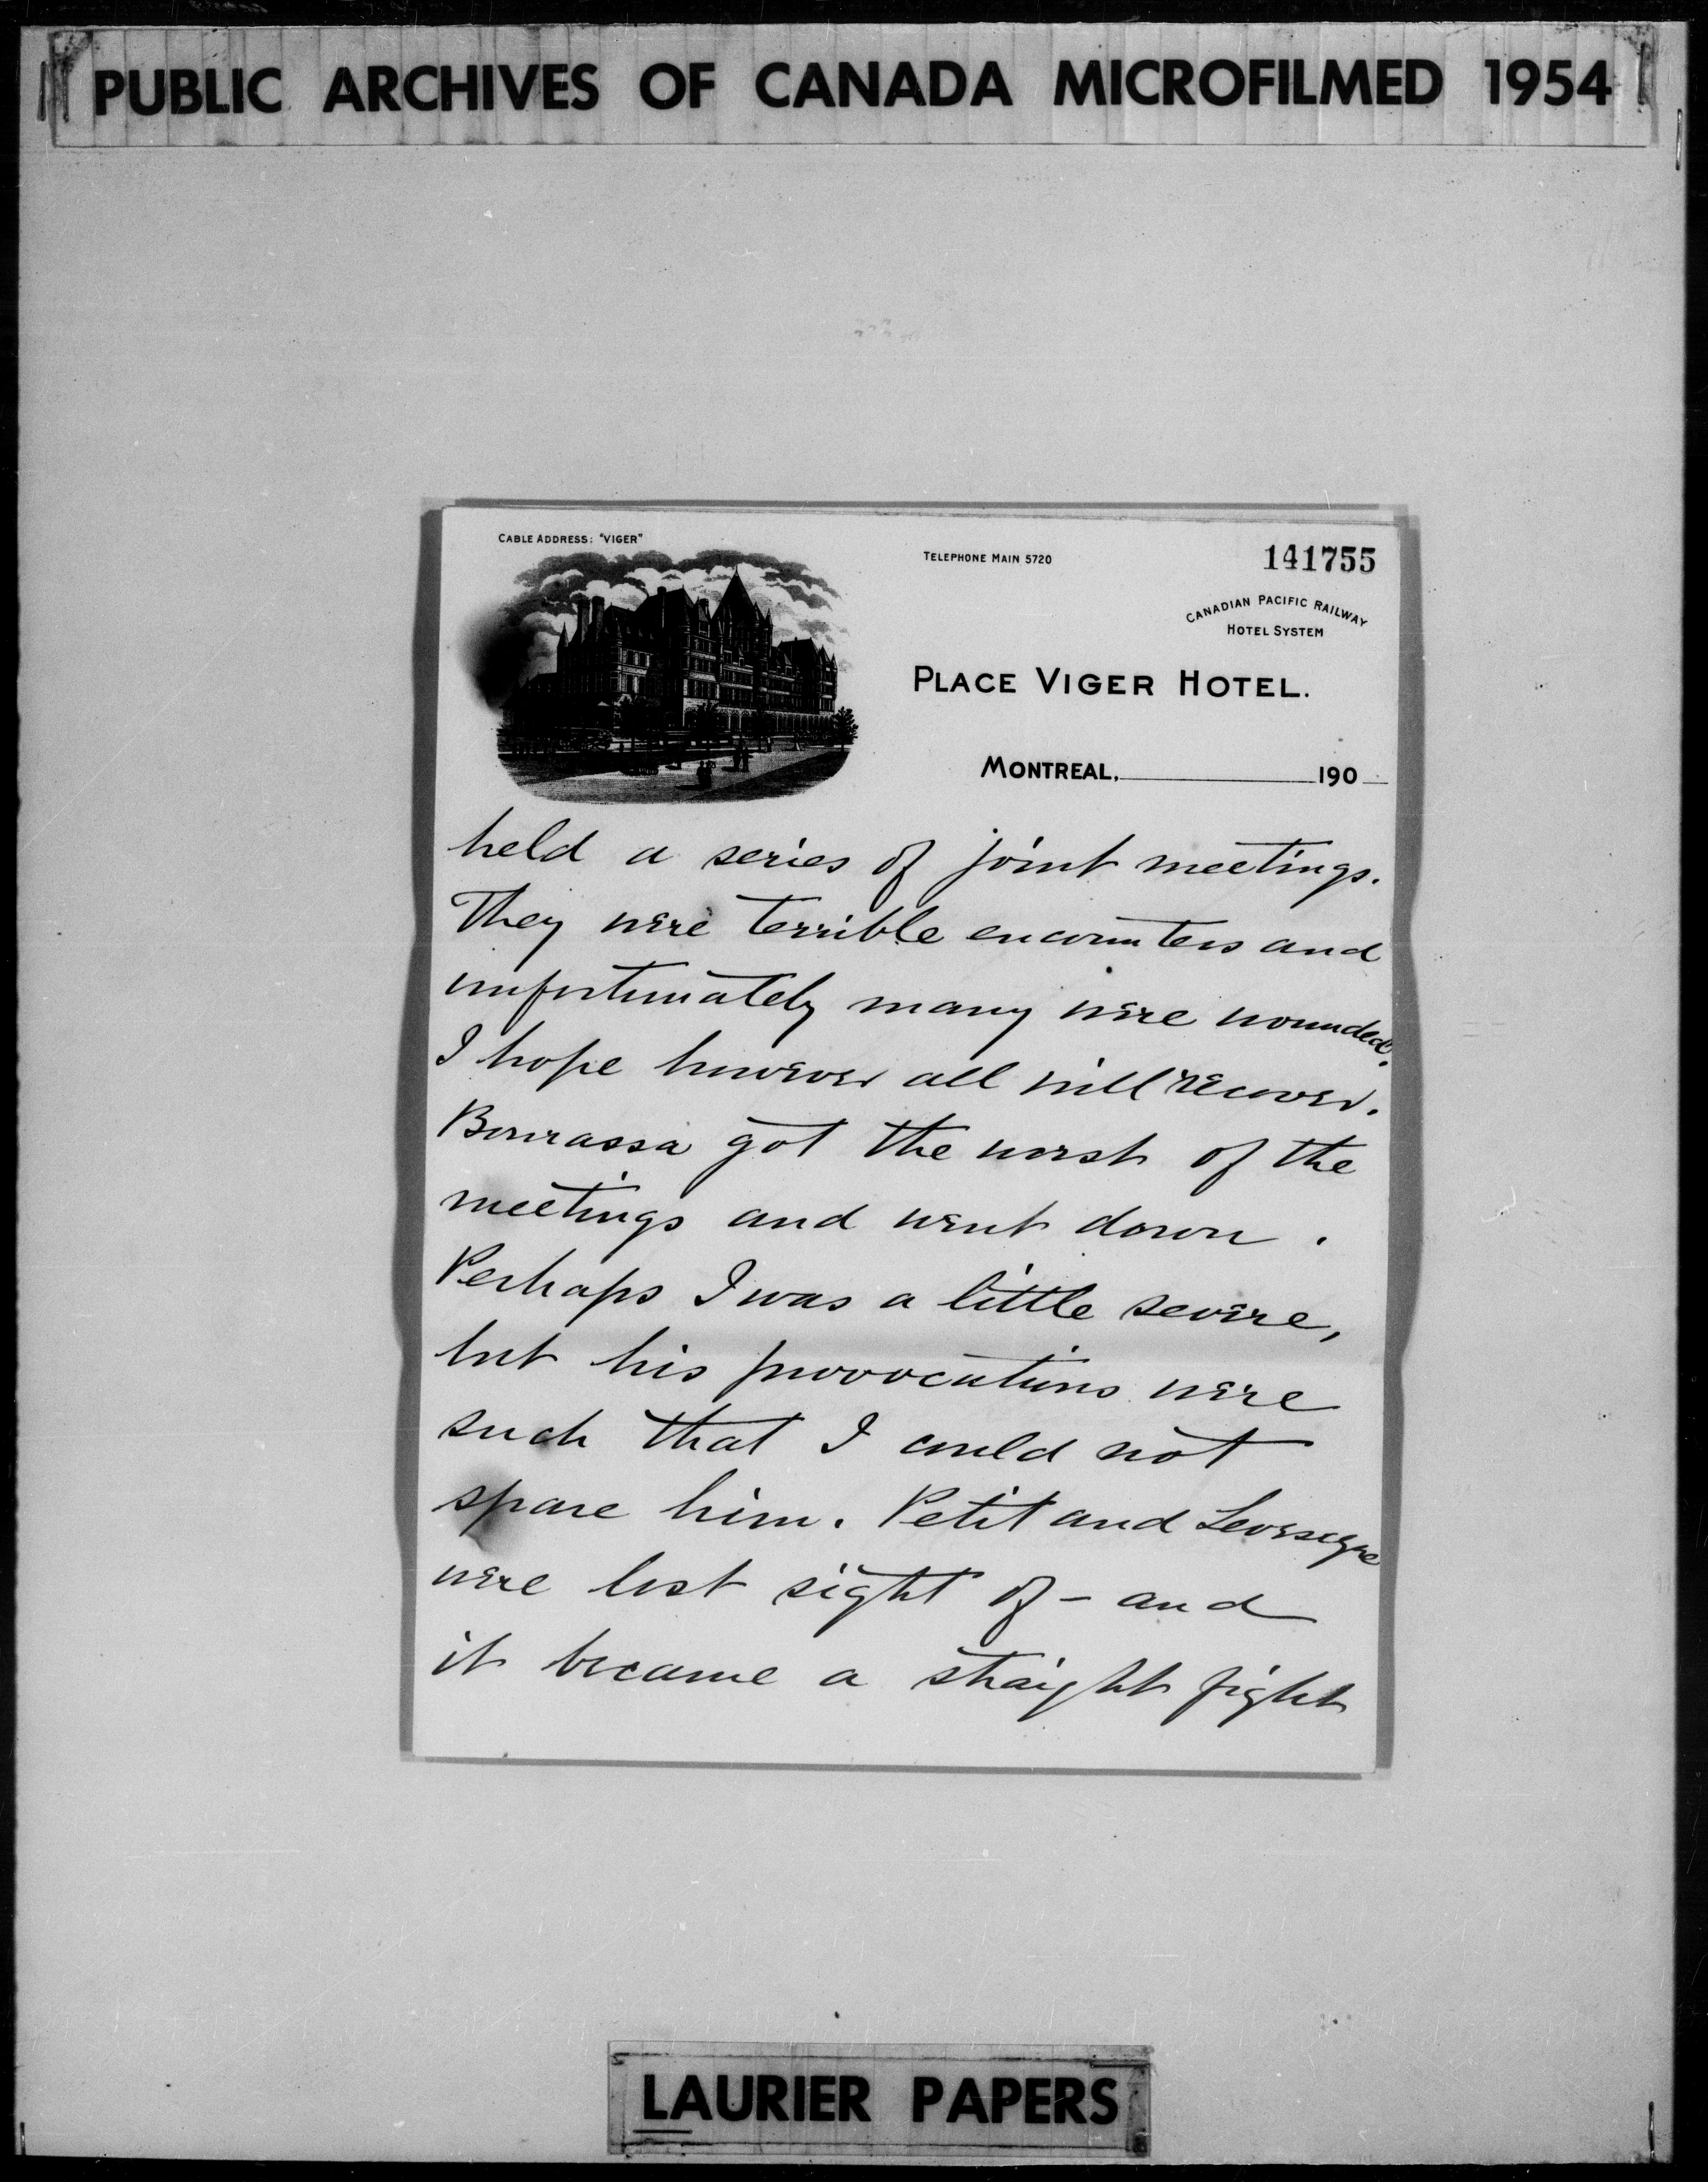 PUBLIC ARCHIVES OF CANADA MICROFILMED 1954
CABLE ADDRESS: "VIGER"
TELEPHONE MAIN 5720
141755
CANADIAN PACIFIC RAILWAY
HOTEL SYSTEM
PLACE VIGER HOTEL.
MONTREAL, 190
held a series of joint meetings.
They were terrible encounters and
unfortunately many were wounded.
I hope however all will recover.
Bourassa got the worst of the
meetings and went down.
Perhaps I was a little severe,
but his provocations were
such that I could not
spare him. Petit and Levesque
were lost sight of - and
it became a straight fight
LAURIER PAPERS